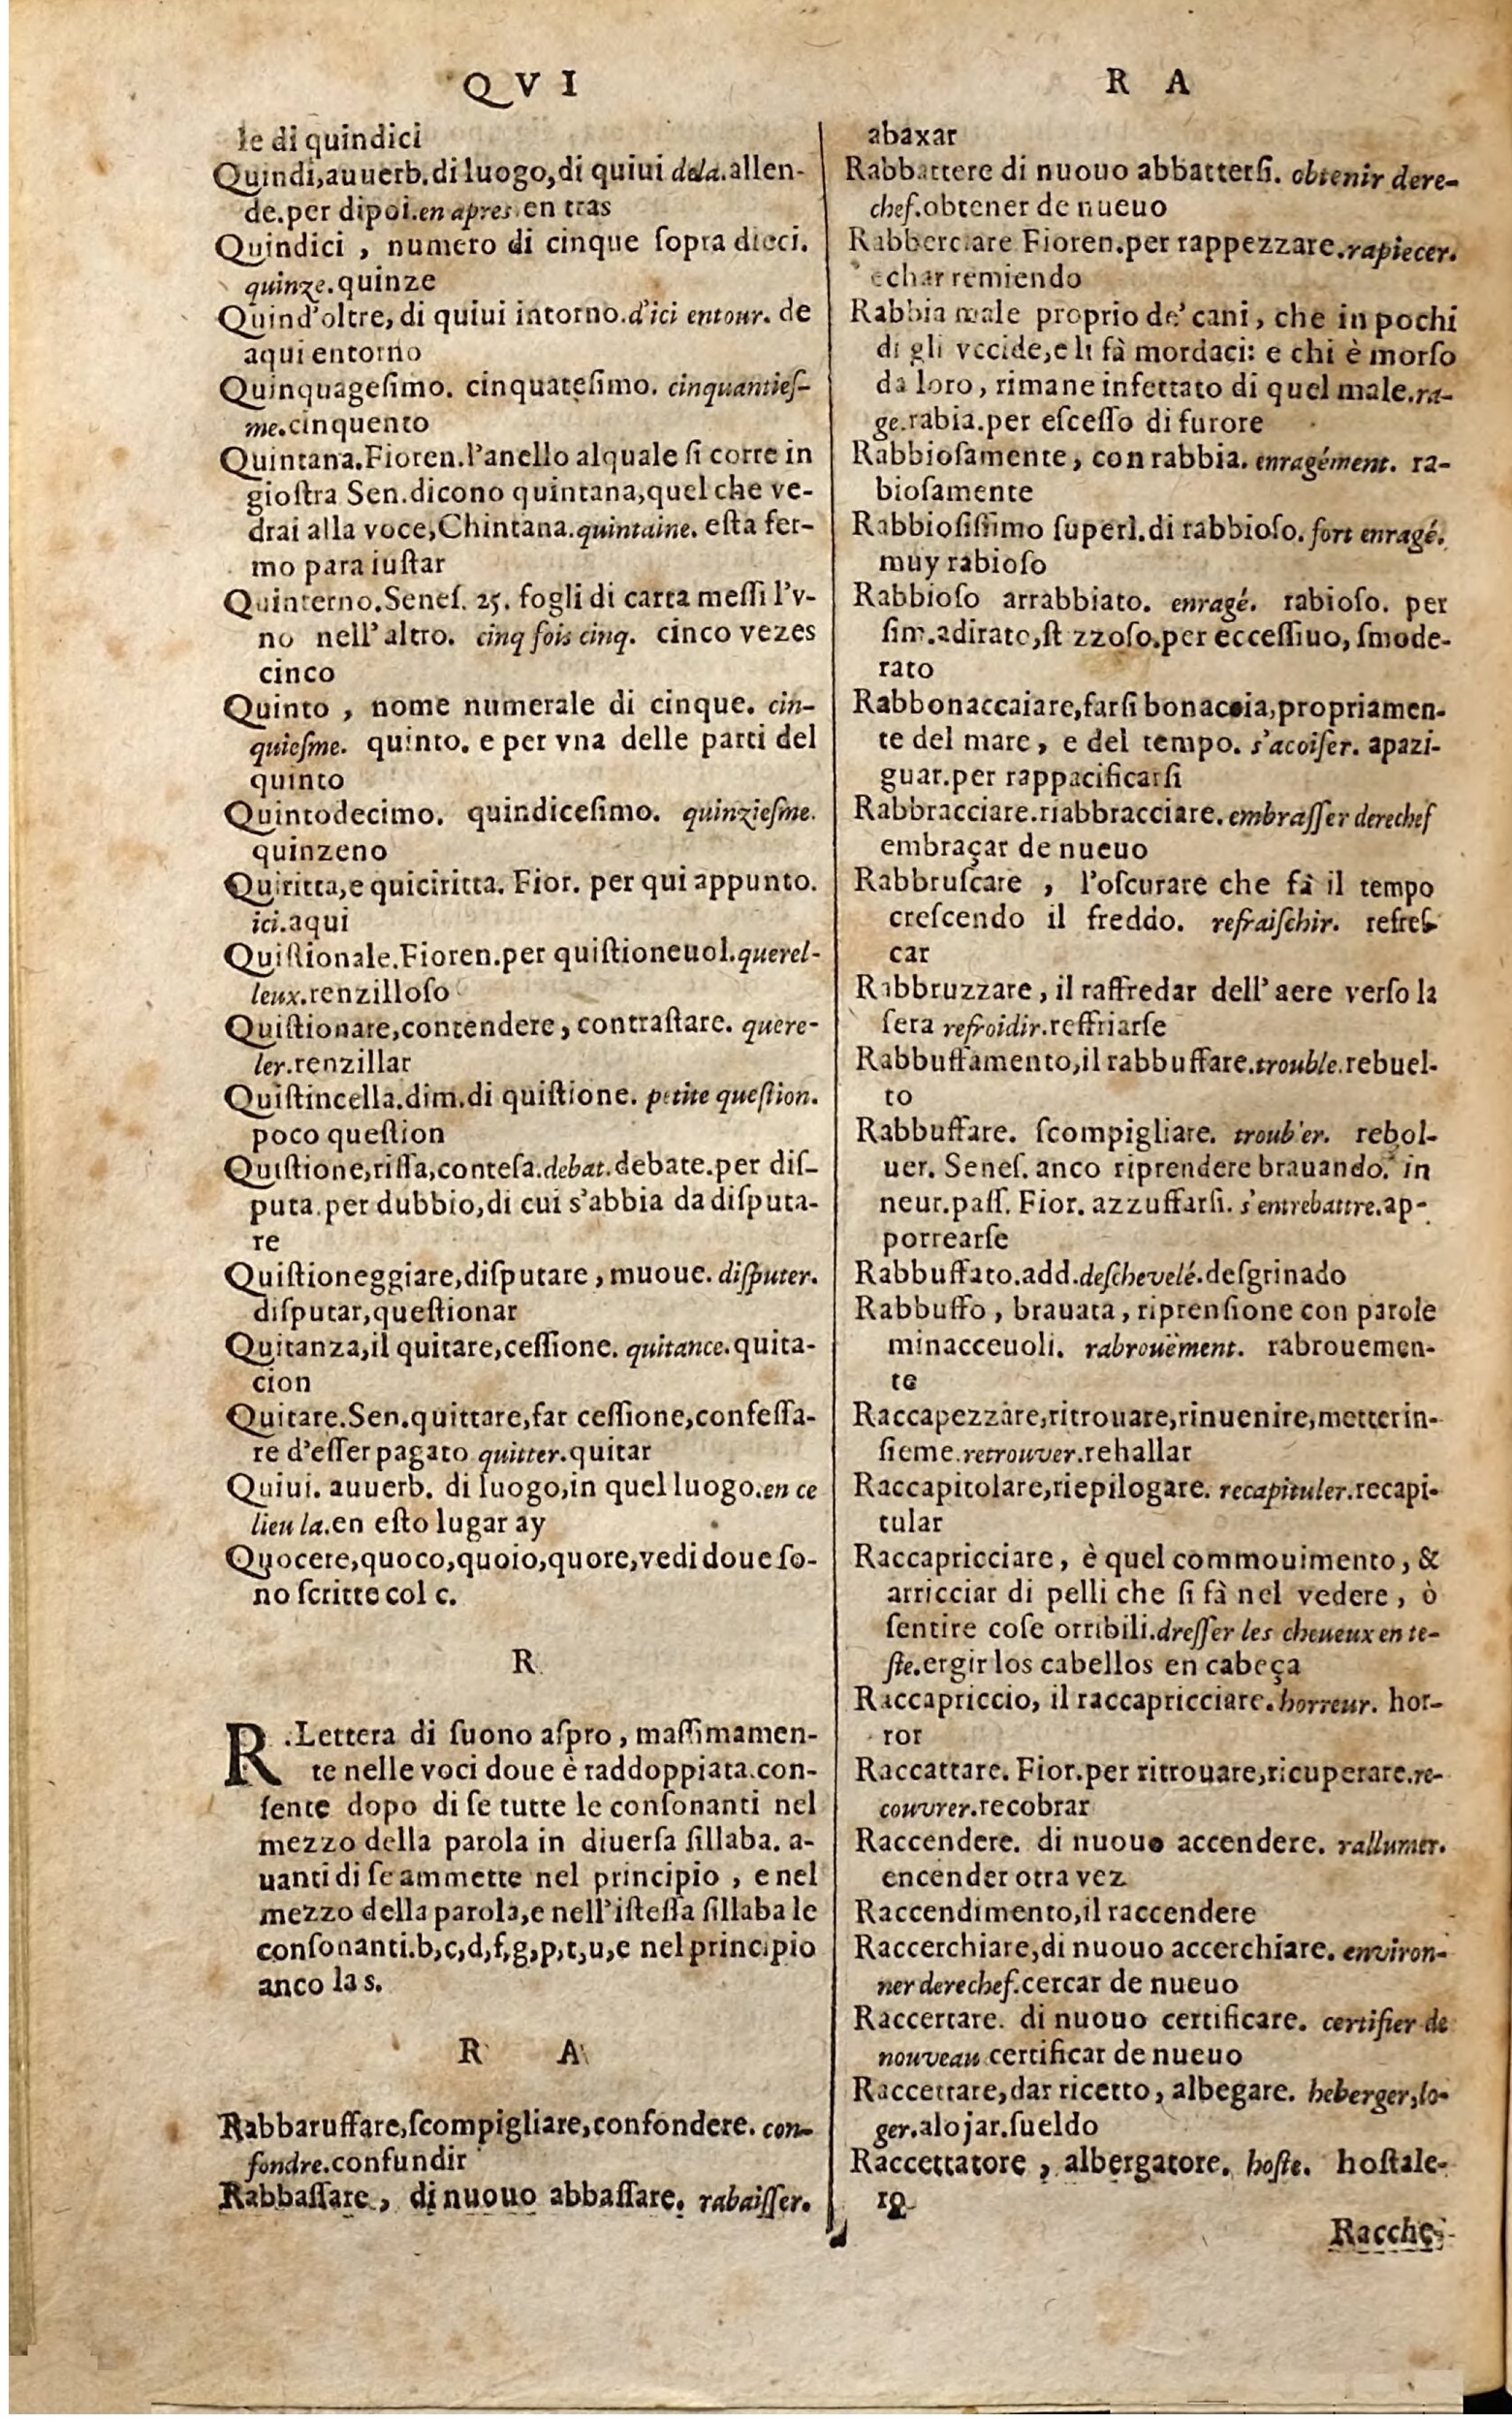 QVI
le di quindici
Quindi,auuerb.di luogo,di quiui dela.allen-
de.per dipoi.en apres.en tras
Quindici , numero di cinque ſopra dieci.
quinze.quinze
Quind'oltre, di quiui intorno.d'ici entour. de
aqui entorno
Quinquageſimo. cinquateſimo. cinquantieſ-
me.cinquento
Quintana.Fioren.l'anello alquale ſi corre in
gioſtra Sen.dicono quintana,quel che ve-
drai alla voce,Chintana.quintaine. eſta fer-
mo para iuſtar
Quinterno.Seneſ. 25. fogli di carta meſſi l'v-
no nell'altro. cinq fois cinq. cinco vezes
cinco
Quinto , nome numerale di cinque. cin-
quieſme. quinto. e per vna delle parti del
quinto
Quintodecimo. quindiceſimo. quinzieſme.
quinzeno
Quiritta,e quiciritta. Fior. per qui appunto.
ici.aqui
Quiſtionale.Fioren.per quiſtioneuol.querel-
leux.renzilloſo
Quiſtionare,contendere, contraſtare. quere-
ler.renzillar
Quiſtincella.dim.di quiſtione. petite queſtion.
poco queſtion
Quiſtione,riſſa,conteſa.debat.debate.per diſ-
puta.per dubbio,di cui s'abbia da diſputa-
re
Quiſtioneggiare,diſputare , muoue. diſputer.
diſputar,queſtionar
Quitanza,il quitare,ceſſione. quitance.quita-
cion
Quitare.Sen.quittare,far ceſſione,confeſſa-
re d'eſſer pagato quitter.quitar
Quiui. auuerb. di luogo,in quel luogo.en ce
lieu la.en eſto lugar ay
Quocere,quoco,quoio,quore,vedi doue ſo-
no ſcritte col c.
R
R .Lettera di ſuono aſpro , maſſimamen-
te nelle voci doue è raddoppiata.con-
ſente dopo di ſe tutte le conſonanti nel
mezzo della parola in diuerſa ſillaba. a-
uanti di ſe ammette nel principio , e nel
mezzo della parola,e nell'iſteſſa ſillaba le
conſonanti.b,c,d,f,g,p,t,u,e nel principio
anco la s.
R A
Rabbaruffare,ſcompigliare,confondere. con-
fondre.confundir
Rabbaſſare , di nuouo abbaſſare. rabaiſſer.
R A
abaxar
Rabbattere di nuouo abbatterſi. obtenir dere-
chef.obtener de nueuo
Rabberciare Fioren.per rappezzare.rapiecer.
echar remiendo
Rabbia male proprio de' cani , che in pochi
di gli vccide,e li fà mordaci: e chi è morſo
da loro , rimane infettato di quel male.ra-
ge.rabia.per eſceſſo di furore
Rabbioſamente, con rabbia. enragément. ra-
bioſamente
Rabbioſiſſimo ſuperl.di rabbioſo. fort enragé.
muy rabioſo
Rabbioſo arrabbiato. enragé. rabioſo. per
ſim.adirato,ſt zzoſo.per ecceſſiuo, ſmode-
rato
Rabbonaccaiare,farſi bonaccia,propriamen-
te del mare , e del tempo. s'acoiſer. apazi-
guar.per rappacificarſi
Rabbracciare.riabbracciare.embraſſer derechef
embraçar de nueuo
Rabbruſcare , l'oſcurare che fà il tempo
creſcendo il freddo. refraiſchir. refreſ-
car
Rabbruzzare , il raffredar dell'aere verſo la
ſera refroidir.reffriarſe
Rabbuffamento,il rabbuffare.trouble.rebuel-
to
Rabbuffare. ſcompigliare. troub'er. rebol-
uer. Seneſ. anco riprendere brauando. in
neur.paſſ. Fior. azzuffarſi. s'entrebattre.ap-
porrearſe
Rabbuffato.add.deſchevelé.deſgrinado
Rabbuffo , brauata , riprenſione con parole
minacceuoli. rabrouëment. rabrouemen-
te
Raccapezzare,ritrouare,rinuenire,metter in-
ſieme.retrouver.rehallar
Raccapitolare,riepilogare. recapituler.recapi-
tular
Raccapricciare , è quel commouimento , &
arricciar di pelli che ſi fà nel vedere , ò
ſentire coſe orribili.dreſſer les cheueux en te-
ſte.ergir los cabellos en cabeça
Raccapriccio, il raccapricciare.horreur. hor-
ror
Raccattare. Fior.per ritrouare,ricuperare.re-
couvrer.recobrar
Raccendere. di nuouo accendere. rallumer.
encender otra vez
Raccendimento,il raccendere
Raccerchiare,di nuouo accerchiare. environ-
ner derechef.cercar de nueuo
Raccertare. di nuouo certificare. certifier de
nouveau certificar de nueuo
Raccettare,dar ricetto, albegare. heberger,lo-
ger.alojar.ſueldo
Raccettatore , albergatore. hoſte. hoſtale-
ro
Racche-